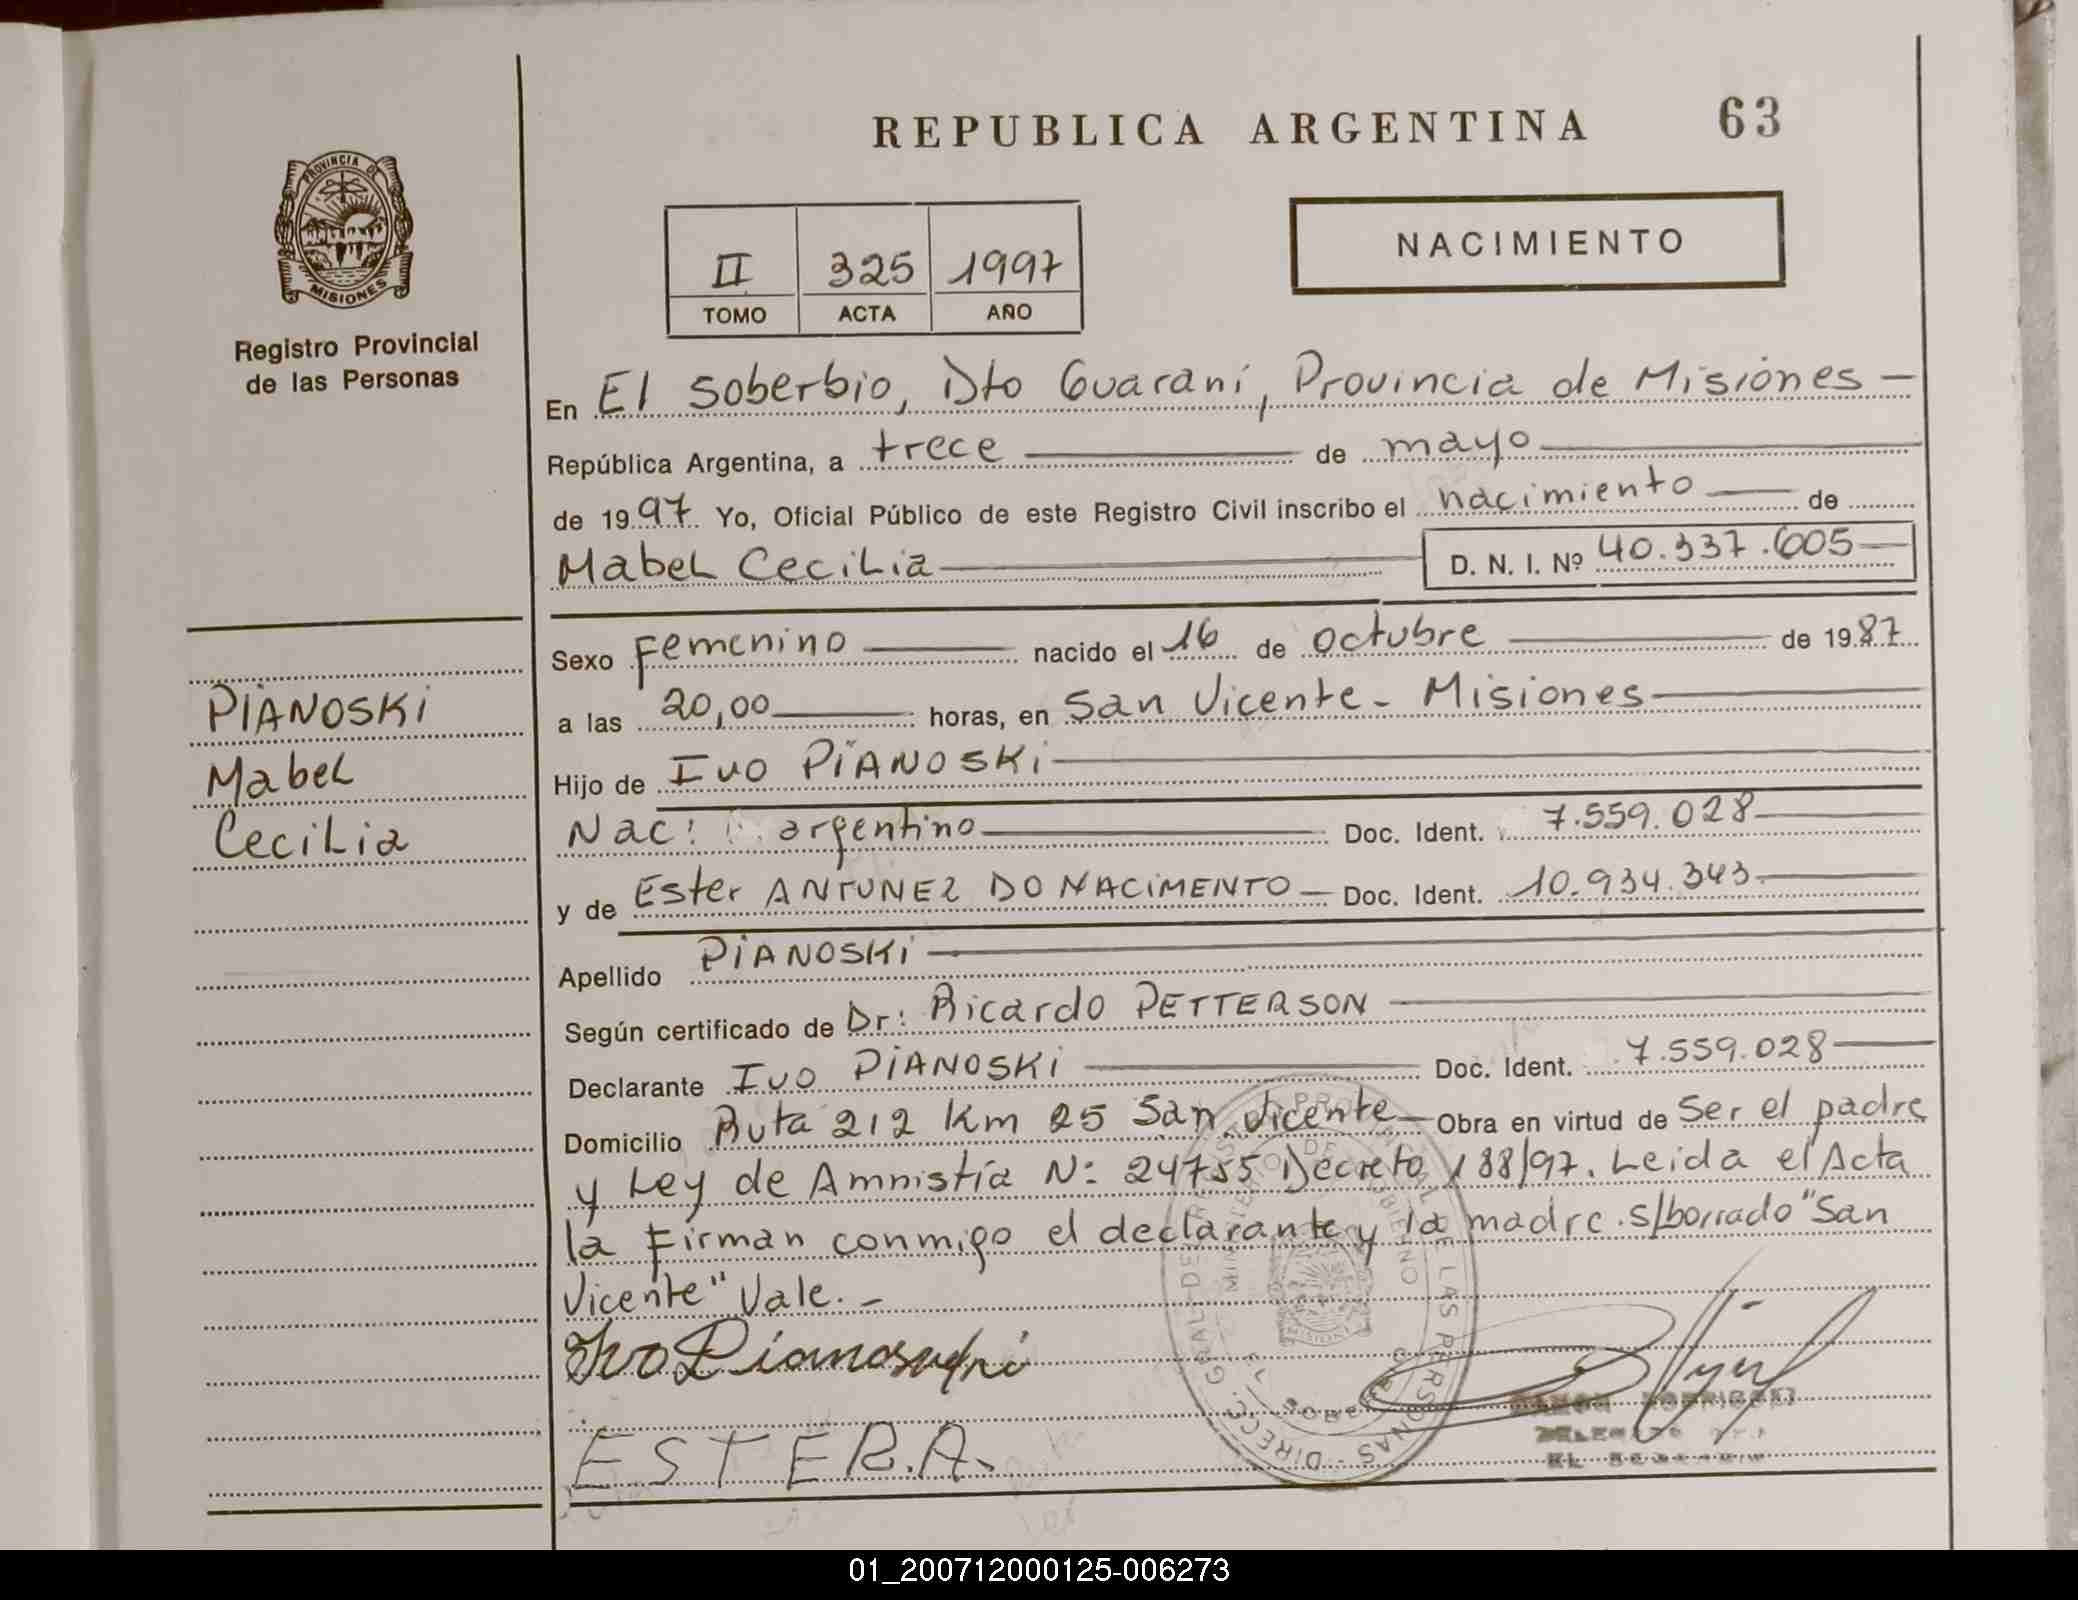 REPUBLICA ARGENTINA
63
PROVINCIA DE
MISIONES
Registro Provincial
de las Personas
II 325 1997
TOMO ACTA AÑO
NACIMIENTO
En El Soberbio, Dto Guaraní, Provincia de Misiones -
República Argentina, a trece de mayo
de 1997 Yo, Oficial Público de este Registro Civil inscribo el nacimiento de
Mabel Cecilia D. N. I. Nº 40.337.605
Sexo Femenino nacido el 16 de octubre de 1987
a las 20,00 horas, en San Vicente - Misiones
Hijo de Ivo PIANOSKI
Nac: argentino Doc. Ident. 7.559.028
y de Ester ANTUNEZ DO NACIMENTO - Doc. Ident. 10.934.343
Apellido PIANOSKI
Según certificado de Dr: Ricardo PETTERSON
Declarante Ivo PIANOSKI Doc. Ident. 7.559.028
Domicilio Ruta 212 Km 25 San Vicente - Obra en virtud de Ser el padre
y Ley de Amnistía N: 24755 Decreto 188/97. Leida el Acta
la Firman conmigo el declarante y la madre. s/borrado "San
Vicente" Vale. -
PIANOSKI
Mabel
Cecilia
Ivo Pianoski
ESTER.A.
RAMON RODRIGUEZ
DELEGADO
EL SOBERBIO
01_200712000125-006273